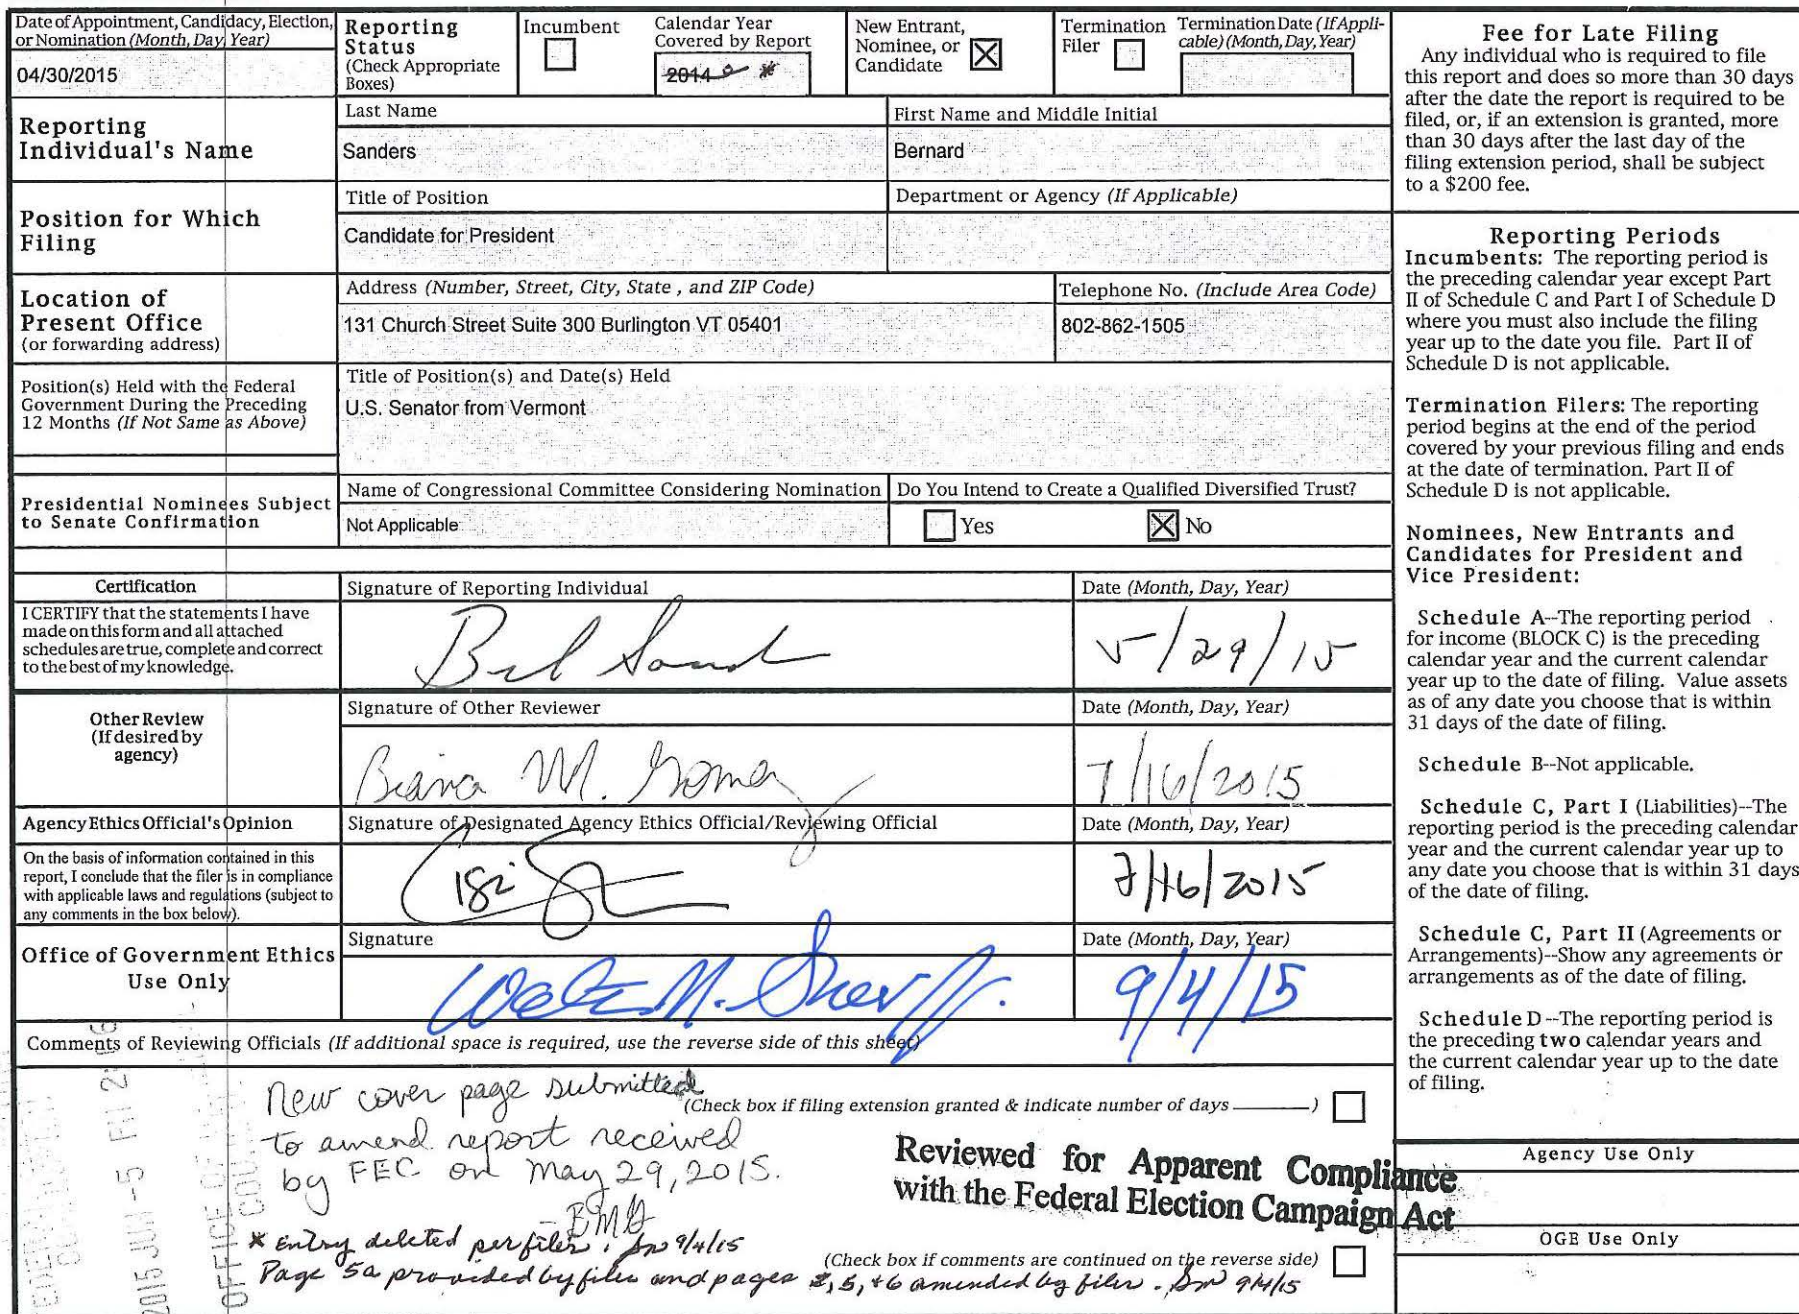 Date of Appointment, Candidacy, Election,
or Nomination (Month, Day, Year)
04/30/2015
Reporting
Status
(Check Appropriate
Boxes)
Incumbent
Calendar Year
Covered by Report
2014 *
New Entrant,
Nominee, or
Candidate
Termination
Filer
Termination Date (If Appli-
cable) (Month, Day, Year)
Reporting
Individual's Name
Last Name
Sanders
First Name and Middle Initial
Bernard
Position for Which
Filing
Title of Position
Candidate for President
Department or Agency (If Applicable)
Location of
Present Office
(or forwarding address)
Address (Number, Street, City, State , and ZIP Code)
131 Church Street Suite 300 Burlington VT 05401
Telephone No. (Include Area Code)
802-862-1505
Position(s) Held with the Federal
Government During the Preceding
12 Months (If Not Same as Above)
Title of Position(s) and Date(s) Held
U.S. Senator from Vermont
Presidential Nominees Subject
to Senate Confirmation
Name of Congressional Committee Considering Nomination
Not Applicable
Do You Intend to Create a Qualified Diversified Trust?
Yes
No
Certification
I CERTIFY that the statements I have
made on this form and all attached
schedules are true, complete and correct
to the best of my knowledge.
Signature of Reporting Individual
Date (Month, Day, Year)
5/29/15
Other Review
(If desired by
agency)
Signature of Other Reviewer
Date (Month, Day, Year)
7/16/2015
Agency Ethics Official's Opinion
On the basis of information contained in this
report, I conclude that the filer is in compliance
with applicable laws and regulations (subject to
any comments in the box below).
Signature of Designated Agency Ethics Official/Reviewing Official
Date (Month, Day, Year)
7/16/2015
Office of Government Ethics
Use Only
Signature
Date (Month, Day, Year)
9/4/15
Comments of Reviewing Officials (If additional space is required, use the reverse side of this sheet)
New cover page submitted
to amend report received
by FEC on May 29, 2015.
BMG
(Check box if filing extension granted & indicate number of days ________)
Reviewed for Apparent Compliance
with the Federal Election Campaign Act
* Entry deleted per filer. 9/4/15
(Check box if comments are continued on the reverse side)
Page 5a provided by filer and pages 2, 5, +6 amended by filer. 9/4/15
2015 JUN -5
OFFICE OF
Fee for Late Filing
Any individual who is required to file
this report and does so more than 30 days
after the date the report is required to be
filed, or, if an extension is granted, more
than 30 days after the last day of the
filing extension period, shall be subject
to a $200 fee.
Reporting Periods
Incumbents: The reporting period is
the preceding calendar year except Part
II of Schedule C and Part I of Schedule D
where you must also include the filing
year up to the date you file. Part II of
Schedule D is not applicable.
Termination Filers: The reporting
period begins at the end of the period
covered by your previous filing and ends
at the date of termination. Part II of
Schedule D is not applicable.
Nominees, New Entrants and
Candidates for President and
Vice President:
Schedule A--The reporting period
for income (BLOCK C) is the preceding
calendar year and the current calendar
year up to the date of filing. Value assets
as of any date you choose that is within
31 days of the date of filing.
Schedule B--Not applicable.
Schedule C, Part I (Liabilities)--The
reporting period is the preceding calendar
year and the current calendar year up to
any date you choose that is within 31 days
of the date of filing.
Schedule C, Part II (Agreements or
Arrangements)--Show any agreements or
arrangements as of the date of filing.
Schedule D--The reporting period is
the preceding two calendar years and
the current calendar year up to the date
of filing.
Agency Use Only
OGE Use Only